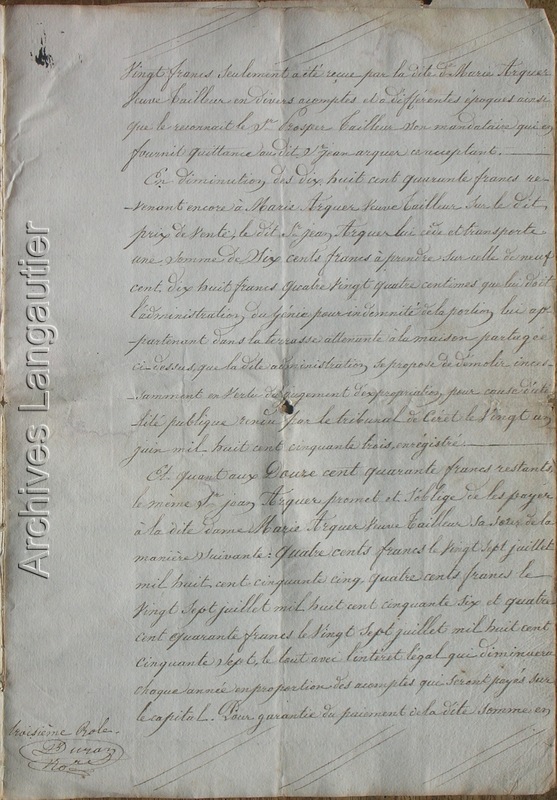 Vingt francs seulement a été reçue par la dite de Marie Arquer
Veuve Tailleur en divers acomptes et à différentes époques ainsi
que le reconnait le Sr Prosper Tailleur son mandataire qui en
fournit quittance audit Sr Jean arquer ce acceptant.
En diminution des dix huit cent quarante francs re-
venant encore à Marie Arquer Veuve Tailleur sur le dit
prix de vente, le dit Sr Jean Arquer lui cède et transporte
une somme de Six cents francs à prendre sur celle de neuf
cent dix huit francs quatre vingt quatre centimes que lui doit
l'administration du Génie pour indemnité de la portion lui ap-
partenant dans la terrasse attenante à la maison partagée
ci-dessus, que la dite administration se propose de démolir inces-
samment en vertu du jugement d'expropriation pour cause d'uti-
lité publique rendu par le tribunal de Céret le Vingt un
juin mil huit cent cinquante trois, enregistré.
Et quant aux Douze cent quarante francs restants,
le même Sr jean Arquer promet et s'oblige de les payer
à la dite dame Marie Arquer Veuve Tailleur sa sœur de la
manière suivante: Quatre cents francs le Vingt sept juillet
mil huit cent cinquante cinq, quatre cents francs le
Vingt sept juillet mil huit cent cinquante six et quatre
cent quarante francs le Vingt sept juillet mil huit cent
cinquante sept, le tout avec l'intérêt légal qui diminuera
chaque année en proportion des acomptes qui seront payés sur
le capital. Pour garantie du paiement de la dite somme en
troisième Role.
Duran
Nore
Archives Langautier